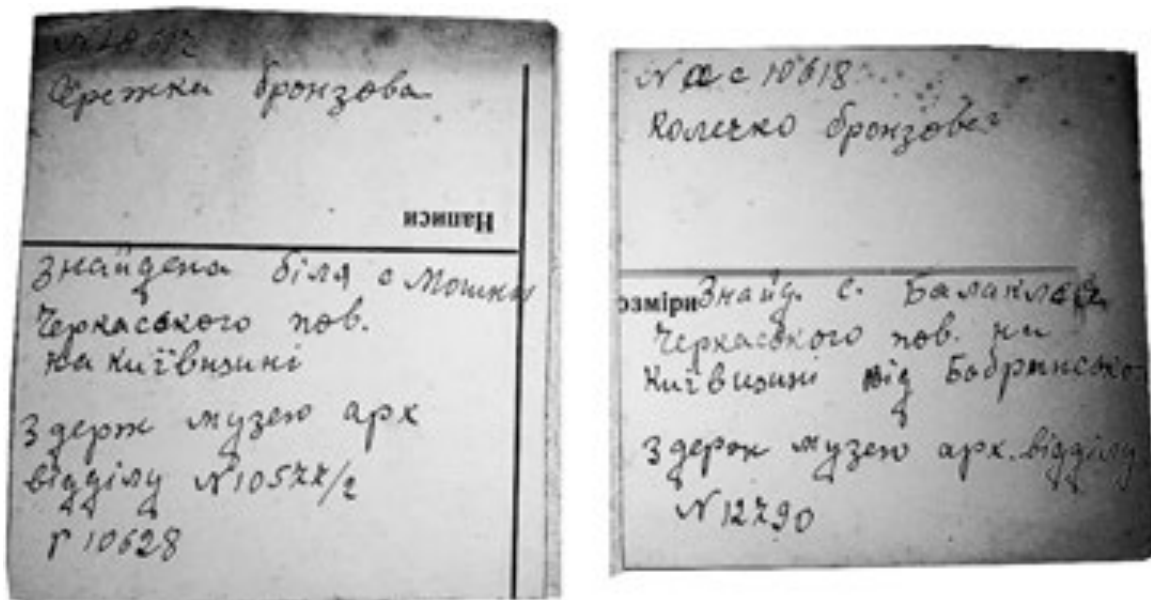 Сережки бронзова
Написи
Знайдена біля с Мошни
Черкаського пов.
на Київщині
З держ музею арх
відділу N10577/2
r 10628
N ас 10618
Колечко бронзове
озміри
Знайд. с. Балаклея
Черкаського пов. на
Київщині від Бобринсько
З держ музею арх. відділу
N 12790